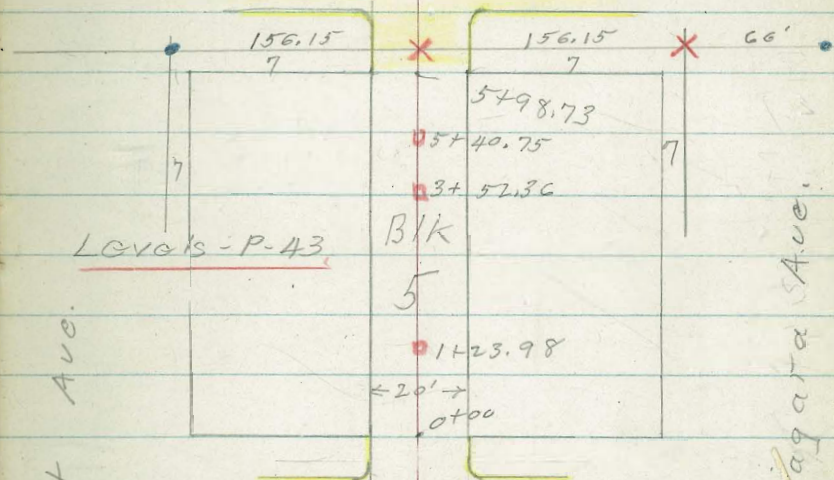 156.15 156.15 66'
7 7
5+98.73
5+40.75
7 7
3+52.36
Blk
Levels - P-43
5
Ave.
1+23.98
20'
0+00
agara Ave.